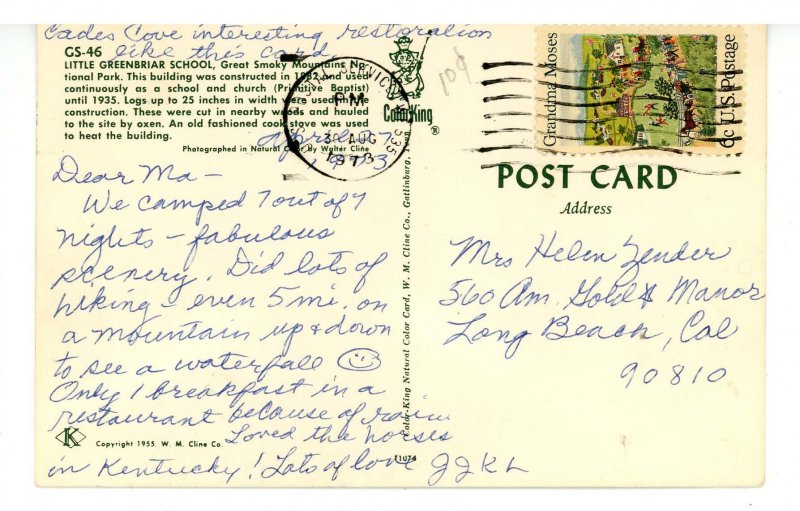 Cades Cove interesting restoration
like this card.
GS-46
LITTLE GREENBRIAR SCHOOL, Great Smoky Mountains Na-
tional Park. This building was constructed in 1882 and used
continuously as a school and church (Primitive Baptist)
until 1935. Logs up to 25 inches in width were used in the
construction. These were cut in nearby woods and hauled
to the site by oxen. An old fashioned cook stove was used
to heat the building.
Photographed in Natural Color by Walter Cline
ColorKing
®
10¢
PM
30 AUG
1973
Grandma Moses
6c U.S. Postage
1973
Dear Ma -
We camped 7 out of 7
nights - fabulous
scenery. Did lots of
hiking - even 5 mi. on
a mountain up & down
to see a waterfall
Only 1 breakfast in a
restaurant because of rain.
Loved the horses
in Kentucky! Lots of love JJKL
K
Copyright 1955. W. M. Cline Co.
71074
Color-King Natural Color Card, W. M. Cline Co., Gatlinburg, Tenn.
POST CARD
Address
Mrs Helen Zender
560 Am. Gold $ Manor
Long Beach, Cal
90810